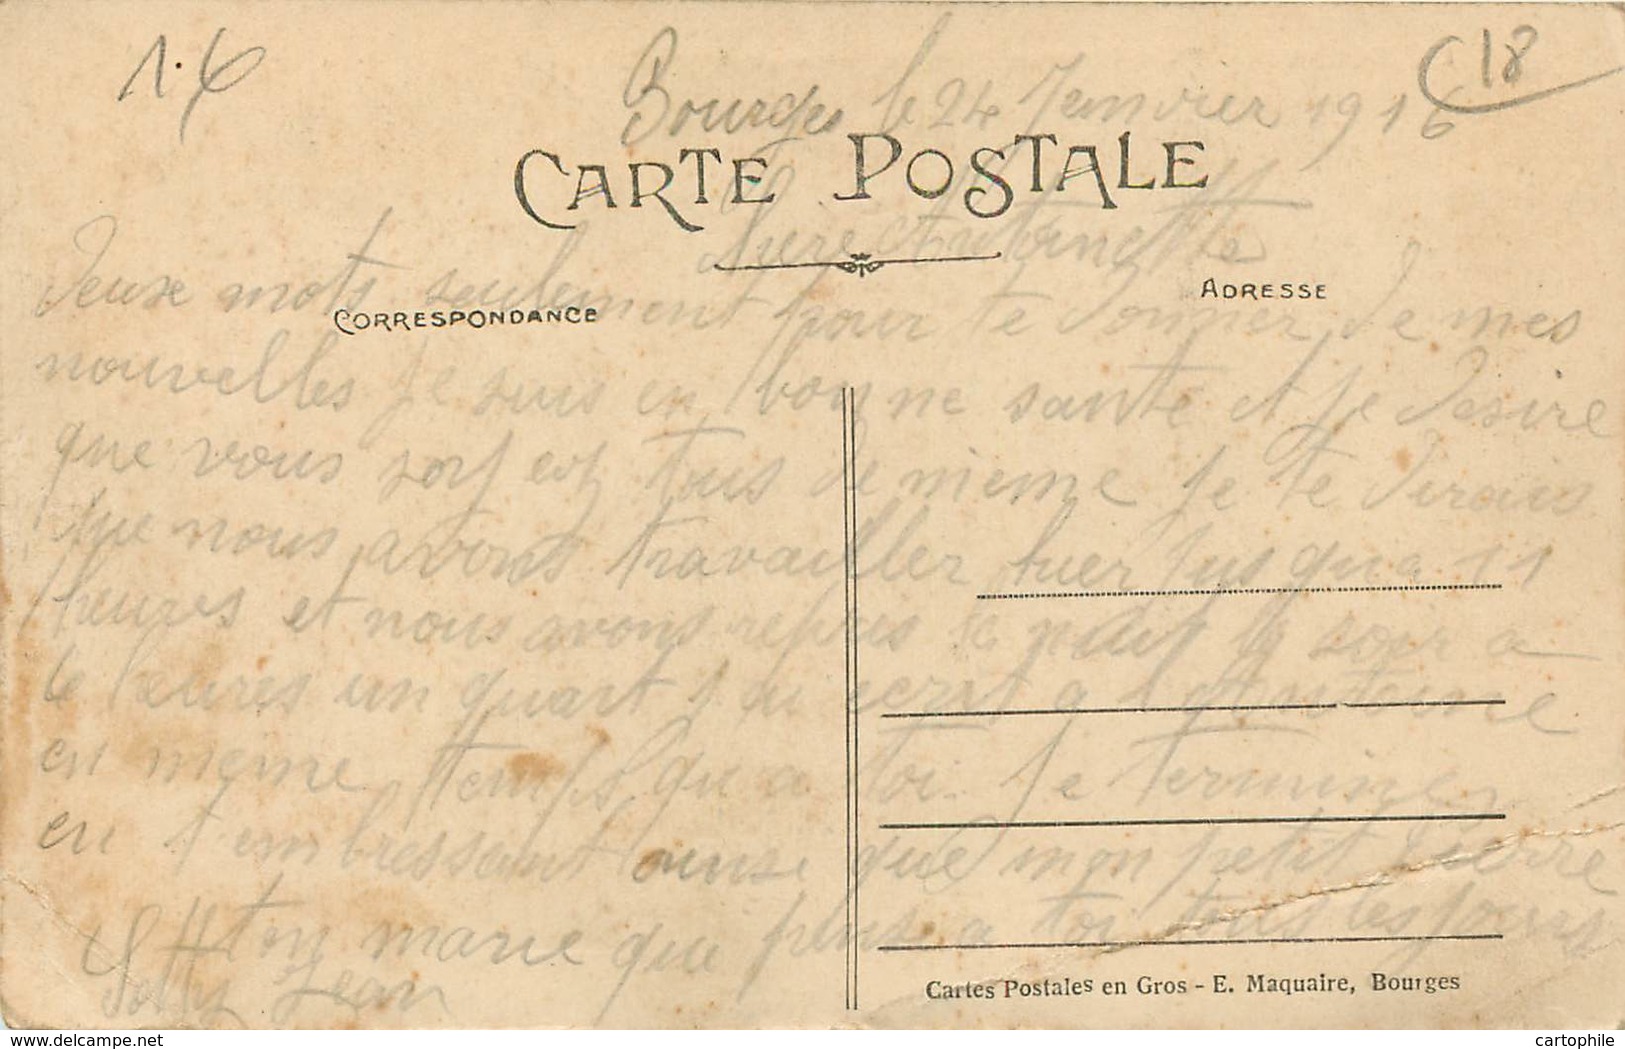 1.6
18
Bourges le 24 Janvier 1916
CARTE POSTALE
Antoinette
ADRESSE
CORRESPONDANCE
deuxe mots seulement pour te donner de mes
nouvelles je suis en bonne santé et je desire
que vous tous de meme je te dirais
que nous avons travailler hier jusqua 11
heures et nous avons repris le soir a
6 heures un quart j ai ecrit a Antoine
en meme temps qu a toi. Je termine
en t embrassant que mon petit Pierre
ton marie qui pense a toi tous les jours
Jean
Cartes Postales en Gros - E. Maquaire, Bourges
www.delcampe.net
cartophile